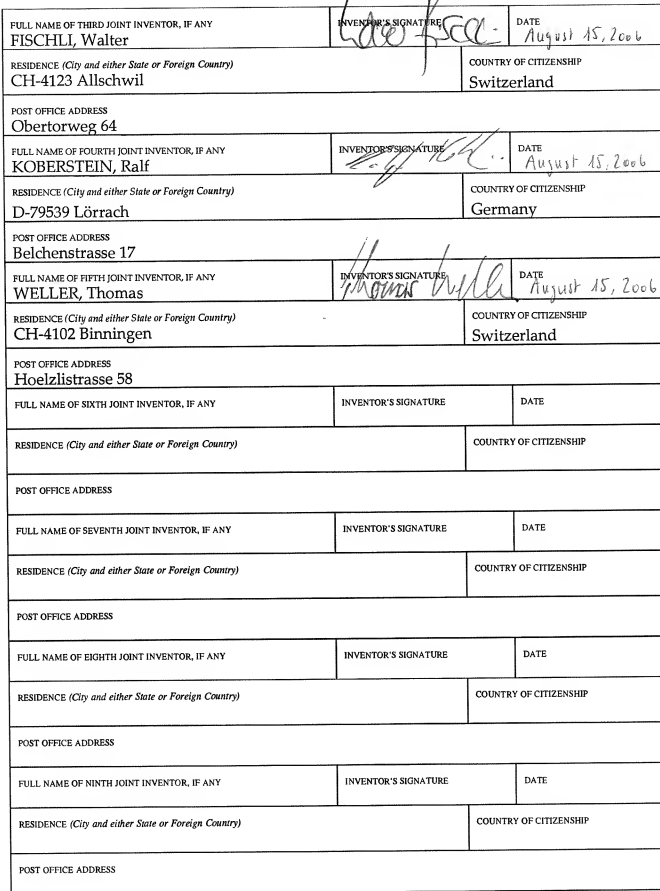 FULL NAME OF THIRD JOINT INVENTOR, IF ANY INVENTOR'S SIGNATURE DATE
FISCHLI, Walter August 15, 2006
RESIDENCE (City and either State or Foreign Country) COUNTRY OF CITIZENSHIP
CH-4123 Allschwil Switzerland
POST OFFICE ADDRESS
Obertorweg 64
FULL NAME OF FOURTH JOINT INVENTOR, IF ANY INVENTOR'S SIGNATURE DATE
KOBERSTEIN, Ralf August 15, 2006
RESIDENCE (City and either State or Foreign Country) COUNTRY OF CITIZENSHIP
D-79539 Lörrach Germany
POST OFFICE ADDRESS
Belchenstrasse 17
FULL NAME OF FIFTH JOINT INVENTOR, IF ANY INVENTOR'S SIGNATURE DATE
WELLER, Thomas Thomas Weller August 15, 2006
RESIDENCE (City and either State or Foreign Country) COUNTRY OF CITIZENSHIP
CH-4102 Binningen Switzerland
POST OFFICE ADDRESS
Hoelzlistrasse 58
FULL NAME OF SIXTH JOINT INVENTOR, IF ANY INVENTOR'S SIGNATURE DATE
RESIDENCE (City and either State or Foreign Country) COUNTRY OF CITIZENSHIP
POST OFFICE ADDRESS
FULL NAME OF SEVENTH JOINT INVENTOR, IF ANY INVENTOR'S SIGNATURE DATE
RESIDENCE (City and either State or Foreign Country) COUNTRY OF CITIZENSHIP
POST OFFICE ADDRESS
FULL NAME OF EIGHTH JOINT INVENTOR, IF ANY INVENTOR'S SIGNATURE DATE
RESIDENCE (City and either State or Foreign Country) COUNTRY OF CITIZENSHIP
POST OFFICE ADDRESS
FULL NAME OF NINTH JOINT INVENTOR, IF ANY INVENTOR'S SIGNATURE DATE
RESIDENCE (City and either State or Foreign Country) COUNTRY OF CITIZENSHIP
POST OFFICE ADDRESS